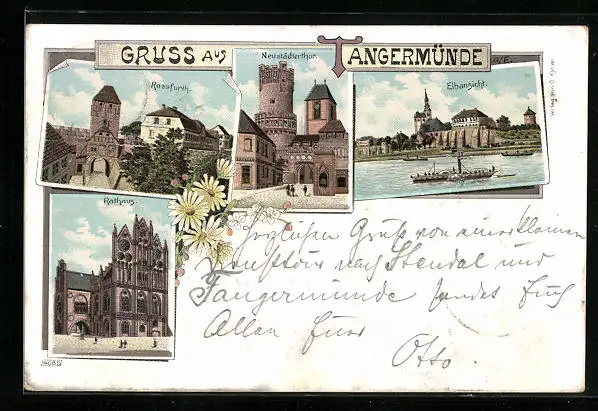 GRUSS AUS TANGERMÜNDE A/E.
Rossfurth.
Neustädterthor.
Elbansicht.
Rathaus.
Herzlichen Gruß von einer kleinen
nach Stendal und
Tangermünde sendet Euch
Allen Euer
Otto.
4685
Verlag von